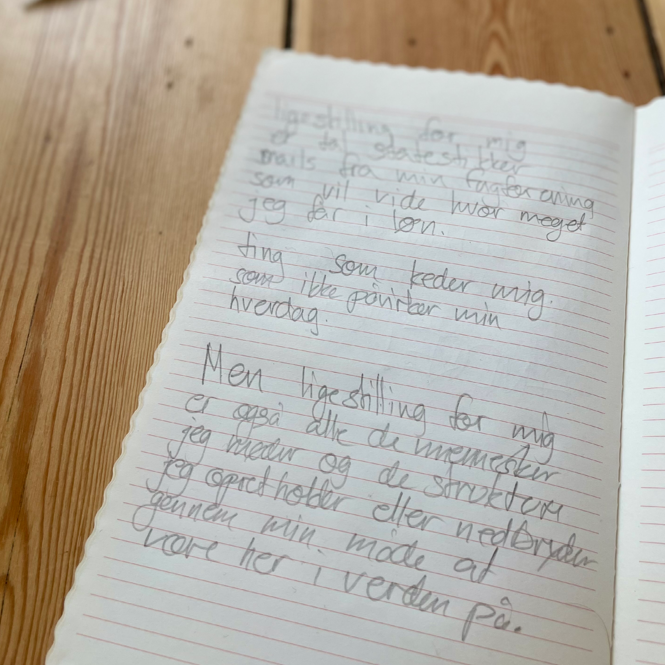 ligestilling for mig
er tal statestikker
mails fra min fagforening
som vil vide hvor meget
jeg får i løn.
ting som keder mig.
som ikke påvirker min
hverdag.
Men ligestilling for mig
er også alle de mennesker
jeg møder og de strukturer
jeg opretholder eller nedbryder
gennem min måde at
være her i verden på.